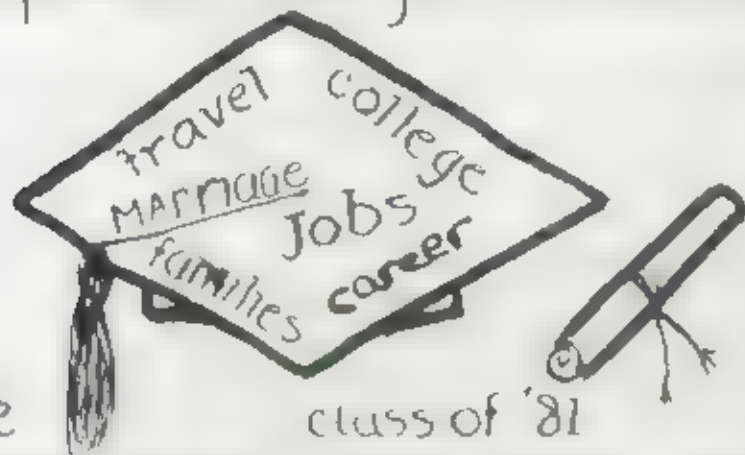 travel
college
MArriage
Jobs
families
career
class of '81